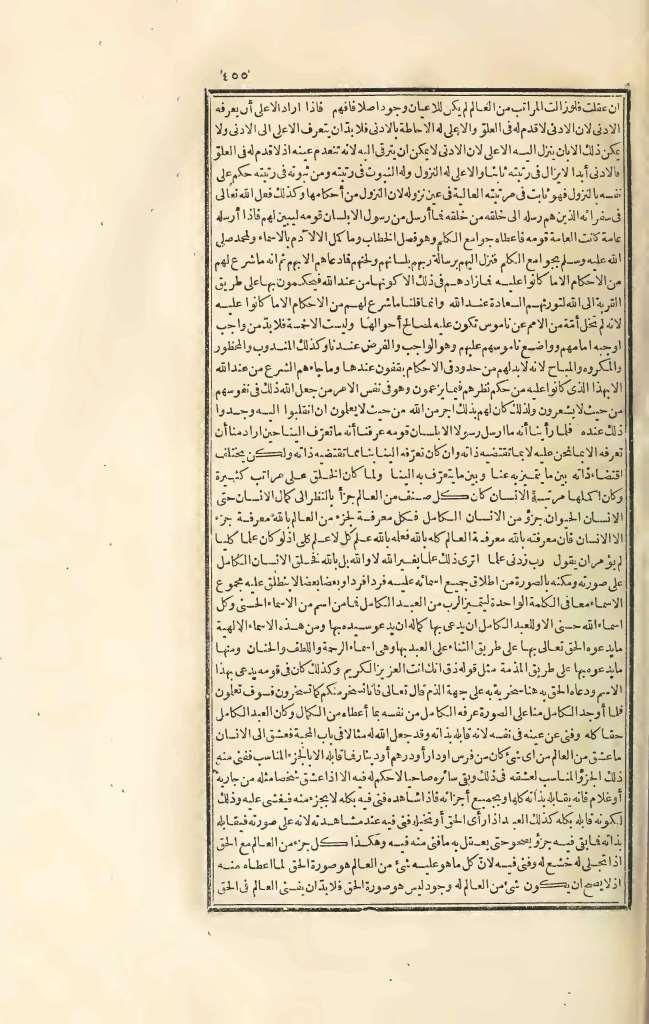 ٤٥٥
ان عقلت فلو زالت المراتب من العالم لم يكن للاعيان وجود اصلا فافهم فاذا اراد الاعلى أن يعرفه
الادنى لان الادنى لا قدم له في العلو والاعلى له الاحاطة بالادنى فلا بد ان يتعرف الاعلى الى الادنى ولا
يمكن ذلك الا بان يتنزل اليه الاعلى لان الادنى لا يمكن ان يترقى اليه لانه تنعدم عينه اذ لا قدم له في العلو
فالادنى أبدا لا يزال في رتبته ثابتا والاعلى له النزول وله الثبوت في رتبته ومن ثبوته في رتبته حكم على
نفسه بالنزول فهو ثابت في مرتبته العالية في عين نزوله لان النزول من أحكامها وكذلك فعل الله تعالى
في سفرائه الذين هم رسله الى خلقه من خلقه فما أرسل من رسول الا بلسان قومه ليبين لهم فاذا أرسله
عامة كانت العامة قومه فاعطاه جوامع الكلم وهو فصل الخطاب وما كمل الا لآدم بالاسماء ولمحمد صلى
الله عليه وسلم بجوامع الكلم فتنزل اليهم برسالة ربهم بلسانهم ولحنهم فما دعاهم الا بهم ثم انه ما شرع لهم
من الاحكام الا ما كانوا عليه فما زادهم في ذلك الا كونها من عند الله فيحكمون بها على طريق
القربة الى الله لتورثهم السعادة عند الله وانما قلنا ما شرع لهم من الاحكام الا ما كانوا عليه
لانه لم تخل أمة من الامم عن ناموس تكون عليه لمصالح أحوالها وليست الا خمسة فلا بد من واجب
اوجبه امامهم وواضع ناموسهم عليهم وهو الواجب والفرض عندنا وكذلك المندوب والمحظور
والمكروه والمباح لانه لا بد لهم من حدود في الاحكام يقفون عندها وما جاءهم الشرع من عند الله
الا بهذا الذي كانوا عليه من حكم نظرهم فيما يزعمون وهو في نفس الامر من جعل الله ذلك في نفوسهم
من حيث لا يشعرون ولذلك كان لهم بذلك اجر من الله من حيث لا يعلمون ان انقلبوا اليه وجدوا
ذلك عنده فلما رأينا أنه ما ارسل رسولا الا بلسان قومه عرفنا أنه ما تعرف الينا حين اراد منا أن
نعرفه الا بما نحن عليه لا بما تقتضيه ذاته وان كان تعرفه الينا بنا مما تقتضيه ذاته ولكن يختلف
اقتضاء ذاته بين ما يتميز به عنا وبين ما يتعرف به الينا ولما كان الخلق على مراتب كثيرة
وكان اكملها مرتبة الانسان كان كل صنف من العالم جزأ بالنظر الى كمال الانسان حتى
الانسان الحيوان جزؤ من الانسان الكامل فكل معرفة لجزء من العالم بالله معرفة جزء
الا الانسان فان معرفته بالله معرفة العالم كله بالله فعلمه بالله علم كل لا علم كلي اذ لو كان علما كليا
لم يؤمر ان يقول رب زدني علما اترى ذلك علما بغير الله لا والله بل بالله فخلق الانسان الكامل
على صورته ومكنه بالصورة من اطلاق جميع اسمائه عليه فردا فردا وبعضا بعضا لا ينطلق عليه مجموع
الاسماء معا في الكلمة الواحدة ليتميز الرب من العبد الكامل فما من اسم من الاسماء الحسنى وكل
اسماء الله حسنى الا وللعبد الكامل ان يدعى بها كما له ان يدعو سيده بها ومن هذه الاسماء الالهية
ما يدعوه الحق تعالى بها على طريق الثناء على العبد بها وهي اسماء الرحمة واللطف والحنان ومنها
ما يدعوه بها على طريق المذمة مثل قوله ذق انك انت العزيز الكريم وكذلك كان في قومه يدعى بهذا
الاسم ودعاه الحق به هنا سخرية به على جهة الذم قال تعالى فانا نسخر منكم كما تسخرون فسوف تعلمون
فلما أوجد الكامل منا على الصورة عرفه الكامل من نفسه بما أعطاه من الكمال وكان العبد الكامل
حقا كله وفنى عن عينه في نفسه لانه قابله بذاته وقد جعل الله له مثالا في باب المحبة فعشق الى الانسان
ما عشق من العالم من أي شئ كان من فرس او دار أو درهم أو دينار فما قابله الا بالجزء المناسب ففنى منه
ذلك الجزؤ المناسب لعشقه في ذلك وبقى سائره صاحيا لا حكم له فيه الا اذا عشق شخصا مثله من جارية
أو غلام فانه يقابله بذاته كلها وبجميع أجزائه فاذا شاهده فنى فيه بكله لا بجزء منه فيغشى عليه وذلك
لكونه قابله بكله كذلك العبد اذا رأى الحق أو تخيله فنى فيه عند مشاهدته لانه على صورته فيقابله
بذاته فما بقى فيه جزؤ يصحو حتى يعقل به ما فنى منه فيه وهكذا كل جزء من العالم مع الحق
اذا تجلى له خشع له وفنى فيه لان كل ما هو عليه شئ من العالم هو صورة الحق لما اعطاه منه
اذ لا يصح ان يكون شئ من العالم له وجود ليس هو صورة الحق فلا بد ان يفنى العالم في الحق